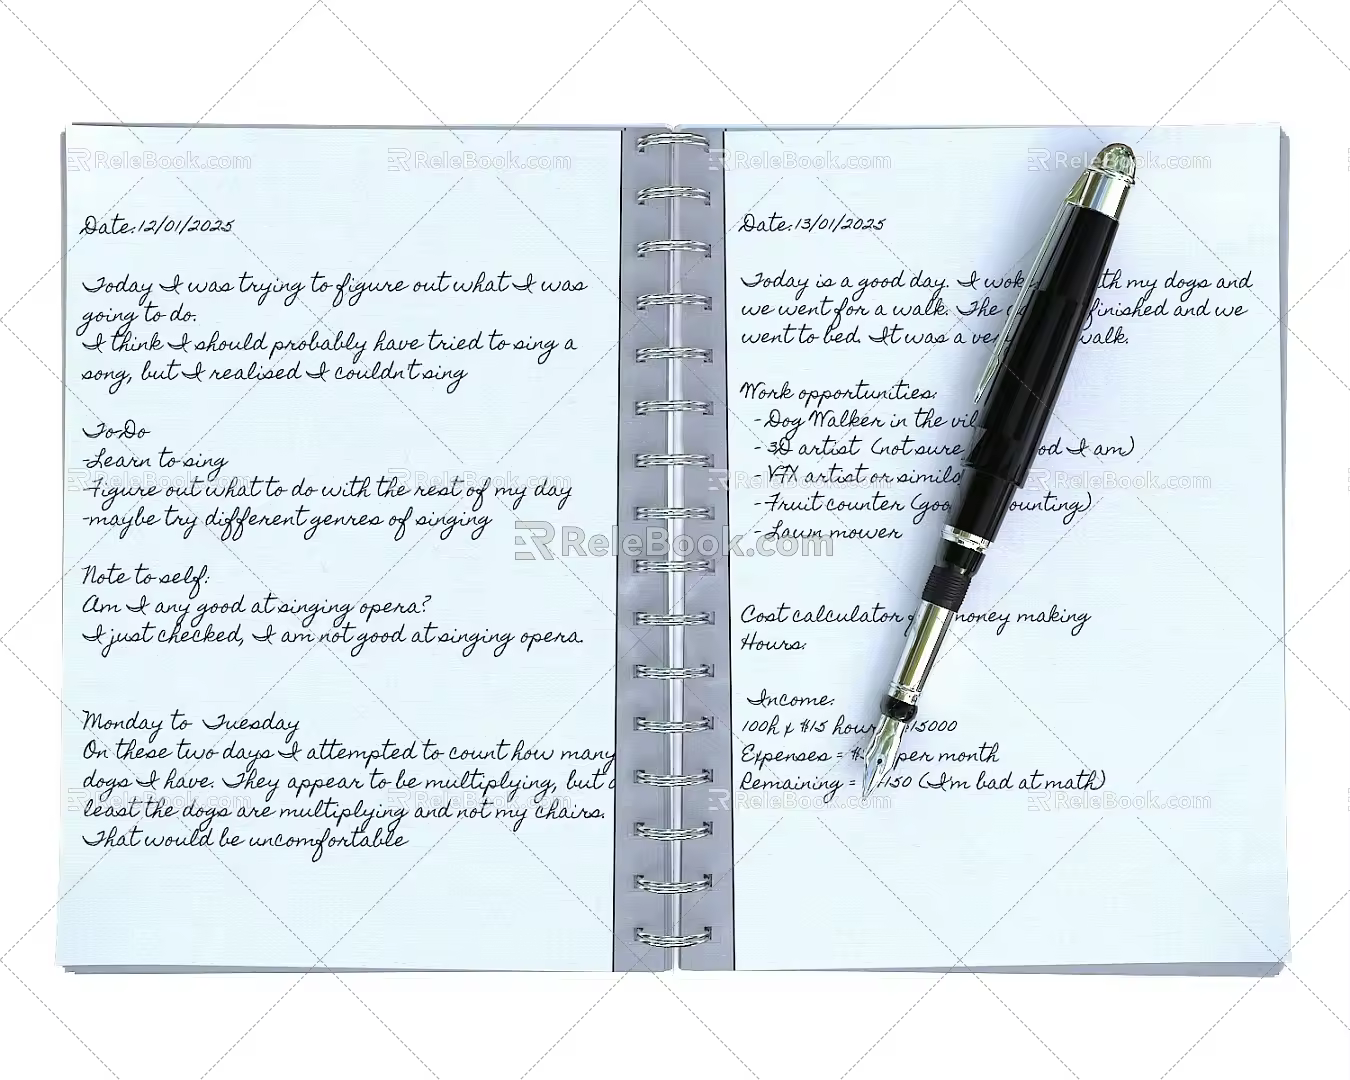 Date:12/01/2025
Today I was trying to figure out what I was
going to do.
I think I should probably have tried to sing a
song, but I realised I couldnt sing
ToDo
-Learn to sing
-Figure out what to do with the rest of my day
-maybe try different genres of singing
Note to self:
Am I any good at singing opera?
I just checked, I am not good at singing opera.
Monday to Tuesday
On these two days I attempted to count how many
dogs I have. They appear to be multiplying, but
least the dogs are multiplying and not my chairs.
That would be uncomfortable
Date:13/01/2025
Today is a good day. I my dogs and
we went for a walk. The finished and we
went to bed. It was a walk.
Work opportunities:
-Dog Walker in the
- 3D artist (not sure I am)
- VFX artist or
-Fruit counter
-Lawn mower
Cost calculator money making
Hours:
Income:
100h x $15
Expenses = per month
Remaining = (I'm bad at math)
ReleBook.com